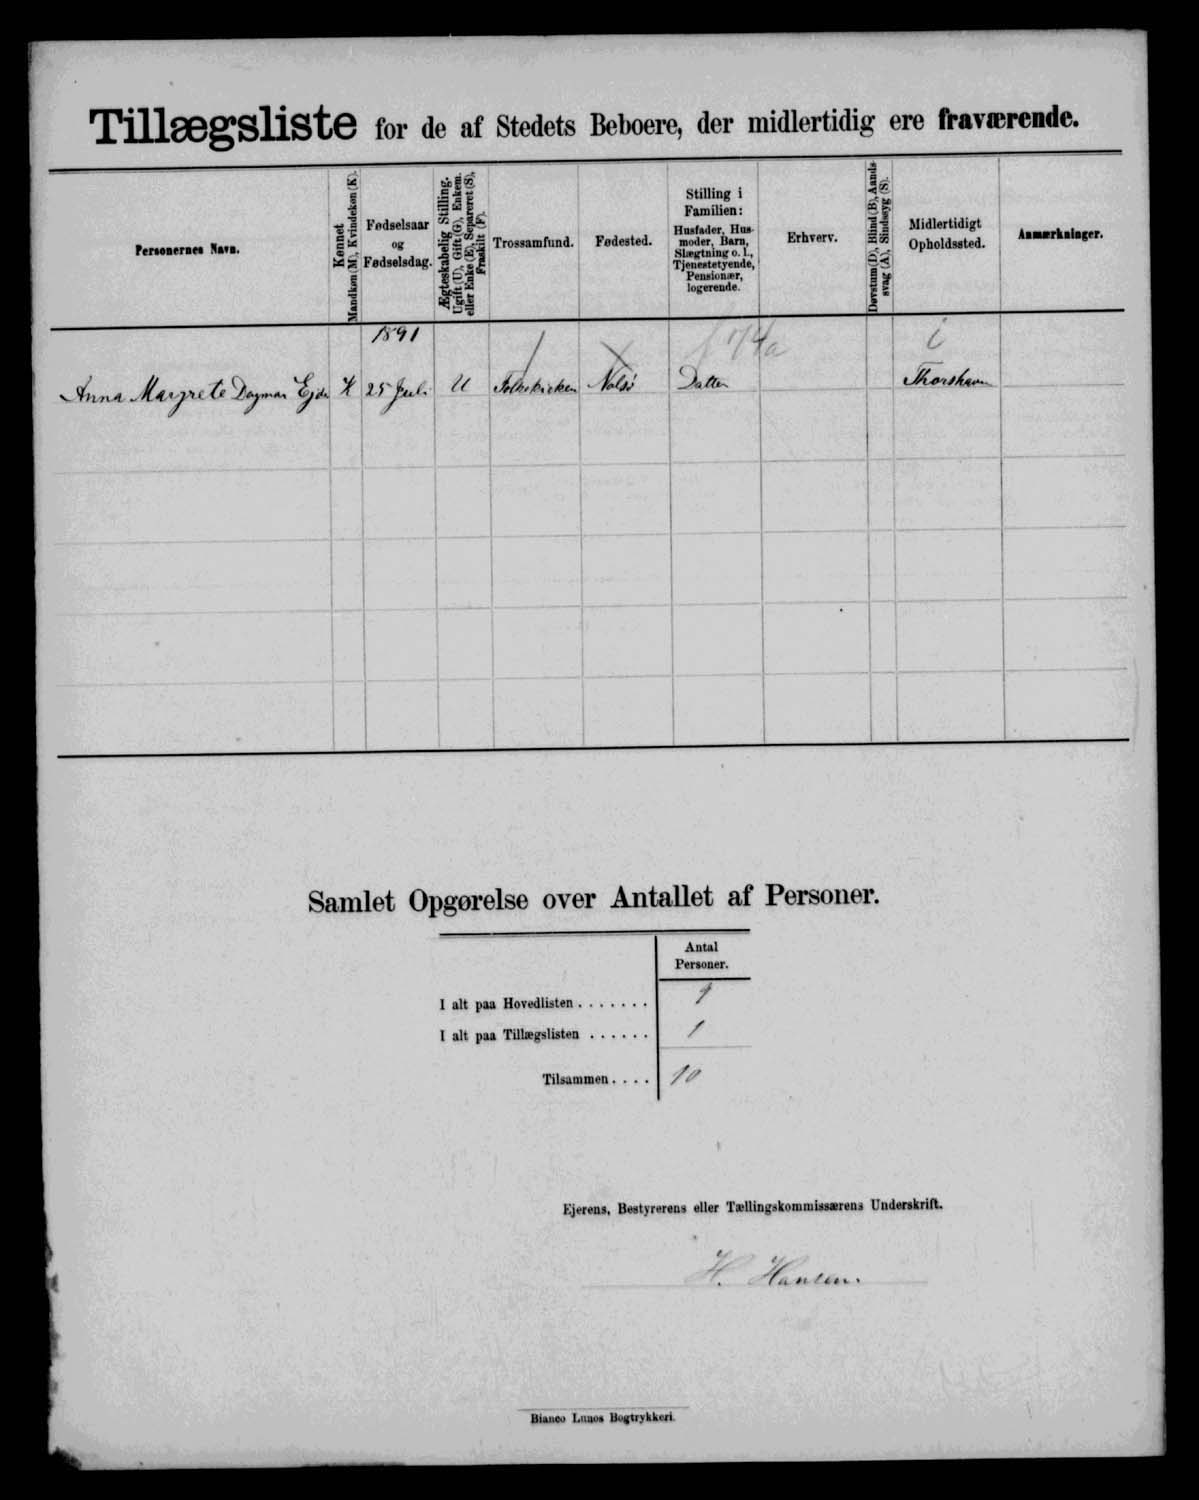 Tillægsliste for de af Stedets Beboere, der midlertidig ere fraværende.
Personernes Navn.
Kønnet
Mandkøn (M), Kvindekøn (K).
Fødselsaar
og
Fødselsdag.
Ægteskabelig Stilling.
Ugift (U), Gift (G), Enkem.
eller Enke (E), Separeret (S),
Fraskilt (F).
Trossamfund.
Fødested.
Stilling i
Familien:
Husfader, Hus-
moder, Barn,
Slægtning o. l.,
Tjenestetyende,
Pensionær,
logerende.
Erhverv.
Døvstum (D), Blind (B), Aands-
svag (A), Sindssyg (S).
Midlertidigt
Opholdssted.
Anmærkninger.
1891
i
Anna Margrete Dagmar Ejde K 25 Juli U Folkekirken Nolsö Datter Thorshavn
Samlet Opgørelse over Antallet af Personer.
Antal
Personer.
I alt paa Hovedlisten . . . . . . . 9
I alt paa Tillægslisten . . . . . . 1
Tilsammen . . . . 10
Ejerens, Bestyrerens eller Tællingskommissærens Underskrift.
H. Hansen.
Bianco Lunos Bogtrykkeri.